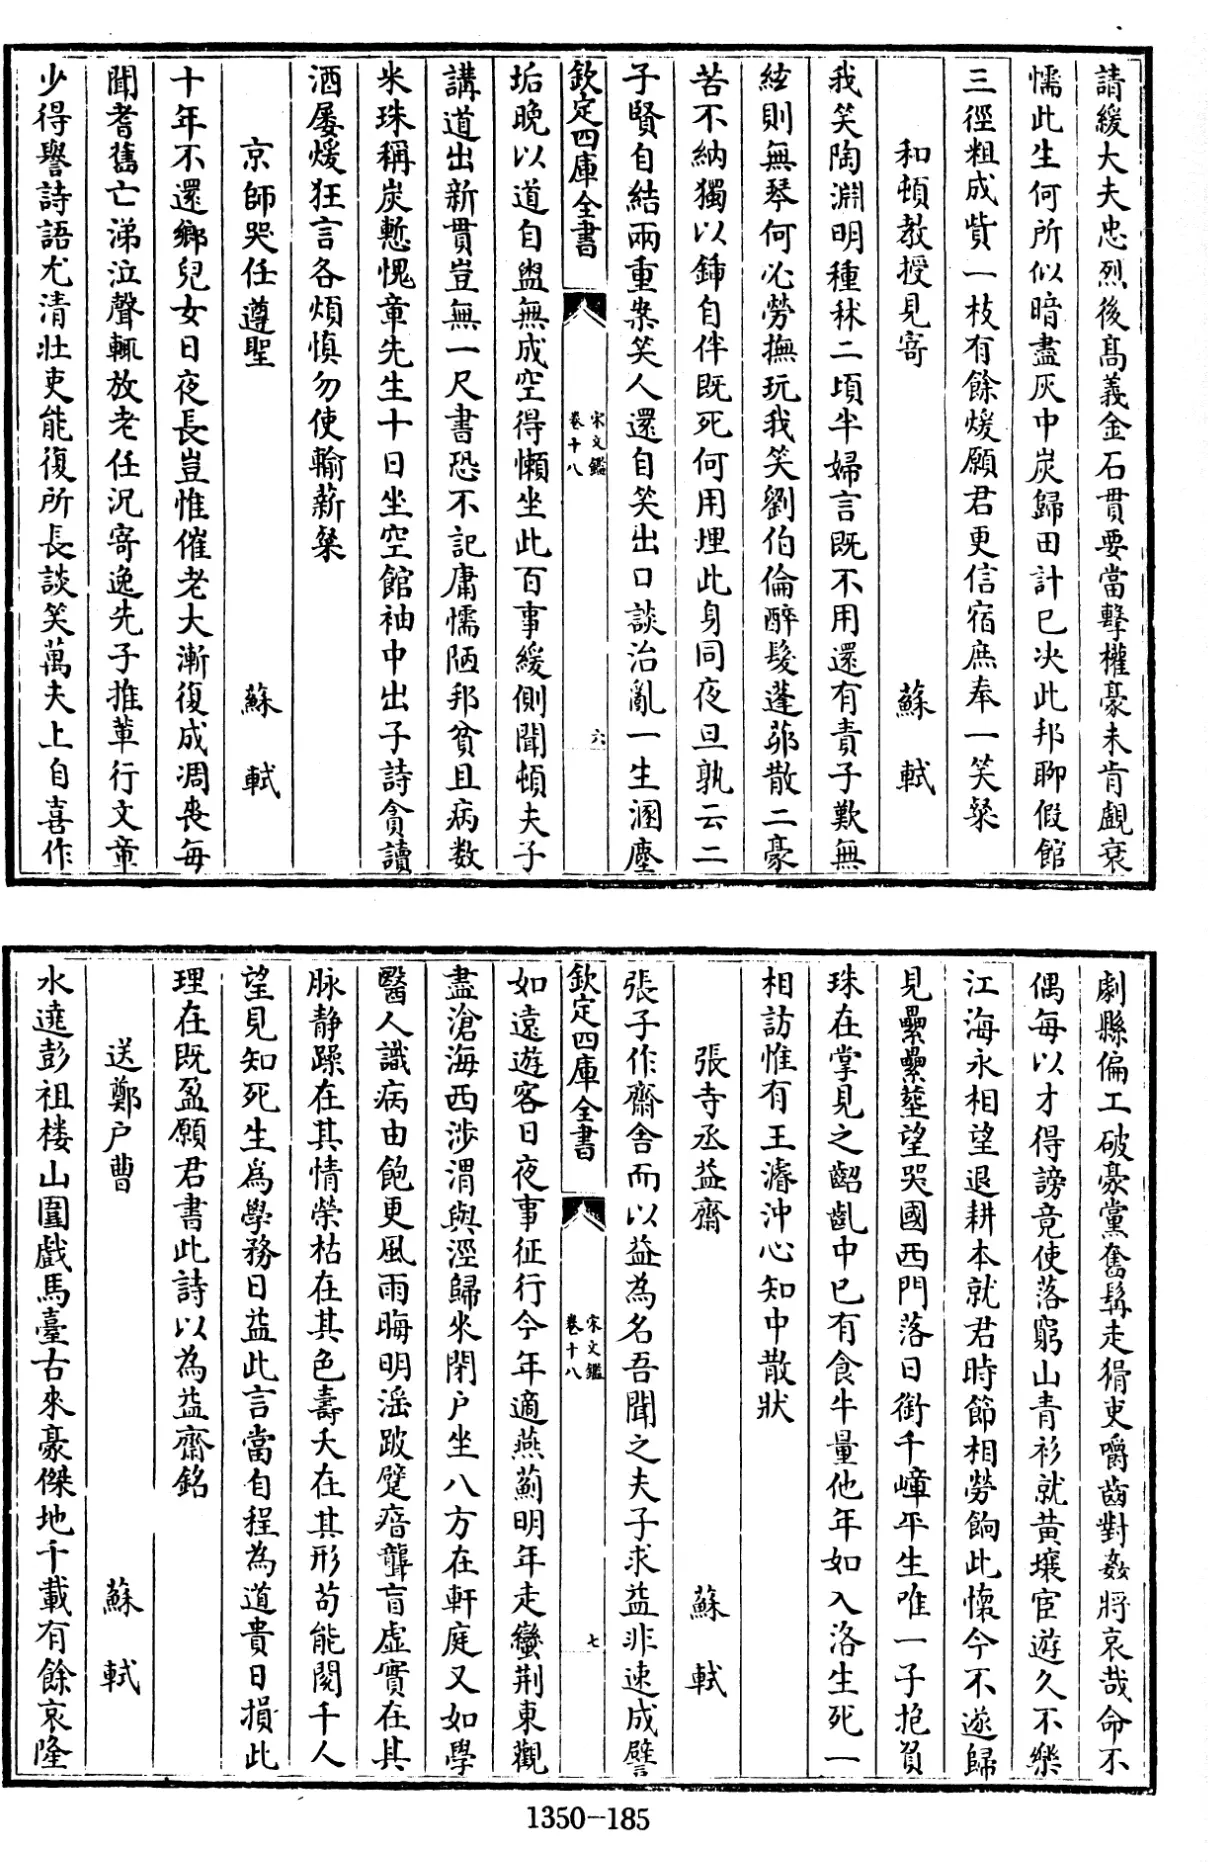 請緩大夫忠烈後高義金石貫要當擊權豪未肯覷衰
懦此生何所似暗盡灰中炭歸田計已决此邦聊假館
三徑粗成貲一枝有餘煖願君更信宿庶奉一笑粲
和頓教授見寄 蘇軾
我笑陶淵明種秫二頃半婦言既不用還有責子歎無
絃則無琴何必勞撫玩我笑劉伯倫醉髮蓬茆散二豪
苦不納獨以鍤自伴既死何用埋此身同夜旦孰云二
子賢自結兩重案笑人還自笑出口談治亂一生溷塵
欽定四庫全書 宋文鑑 卷十八 六
垢晩以道自盥無成空得懶坐此百事緩側聞頓夫子
講道出新貫豈無一尺書恐不記庸懦陋邦貧且病數
米珠稱炭慙愧章先生十日坐空館袖中出子詩貪讀
酒屢煖狂言各煩慎勿使輸薪粲
京師哭任遵聖 蘇軾
十年不還鄉兒女日夜長豈惟催老大漸復成凋喪每
聞耆舊亡涕泣聲輒放老任況寄逸先子推輩行文章
少得譽詩語尤清壯吏能復所長談笑萬夫上自喜作
劇縣偏工破豪黨奮髯走猾吏嚼齒對姦將哀哉命不
偶每以才得謗竟使落窮山青衫就黄壤宦遊久不樂
江海永相望退耕本就君時節相勞餉此懷今不遂歸
見纍纍塟望哭國西門落日銜千嶂平生唯一子抱負
珠在掌見之齠齓中已有食牛量他年如入洛生死一
相訪惟有王濬沖心知中散狀
張寺丞益齋 蘇軾
張子作齋舍而以益為名吾聞之夫子求益非速成譬
欽定四庫全書 宋文鑑 卷十八 七
如遠遊客日夜事征行今年適燕薊明年走蠻荆東觀
盡滄海西涉渭與涇歸來閉户坐八方在軒庭又如學
醫人識病由飽更風雨晦明淫跛躄瘖聾盲虚實在其
脉静躁在其情榮枯在其色壽夭在其形苟能閲千人
望見知死生爲學務日益此言當自程為道貴日損此
理在既盈願君書此詩以為益齋銘
送鄭户曹 蘇軾
水遶彭祖樓山圍戲馬臺古來豪傑地千載有餘哀隆
1350-185